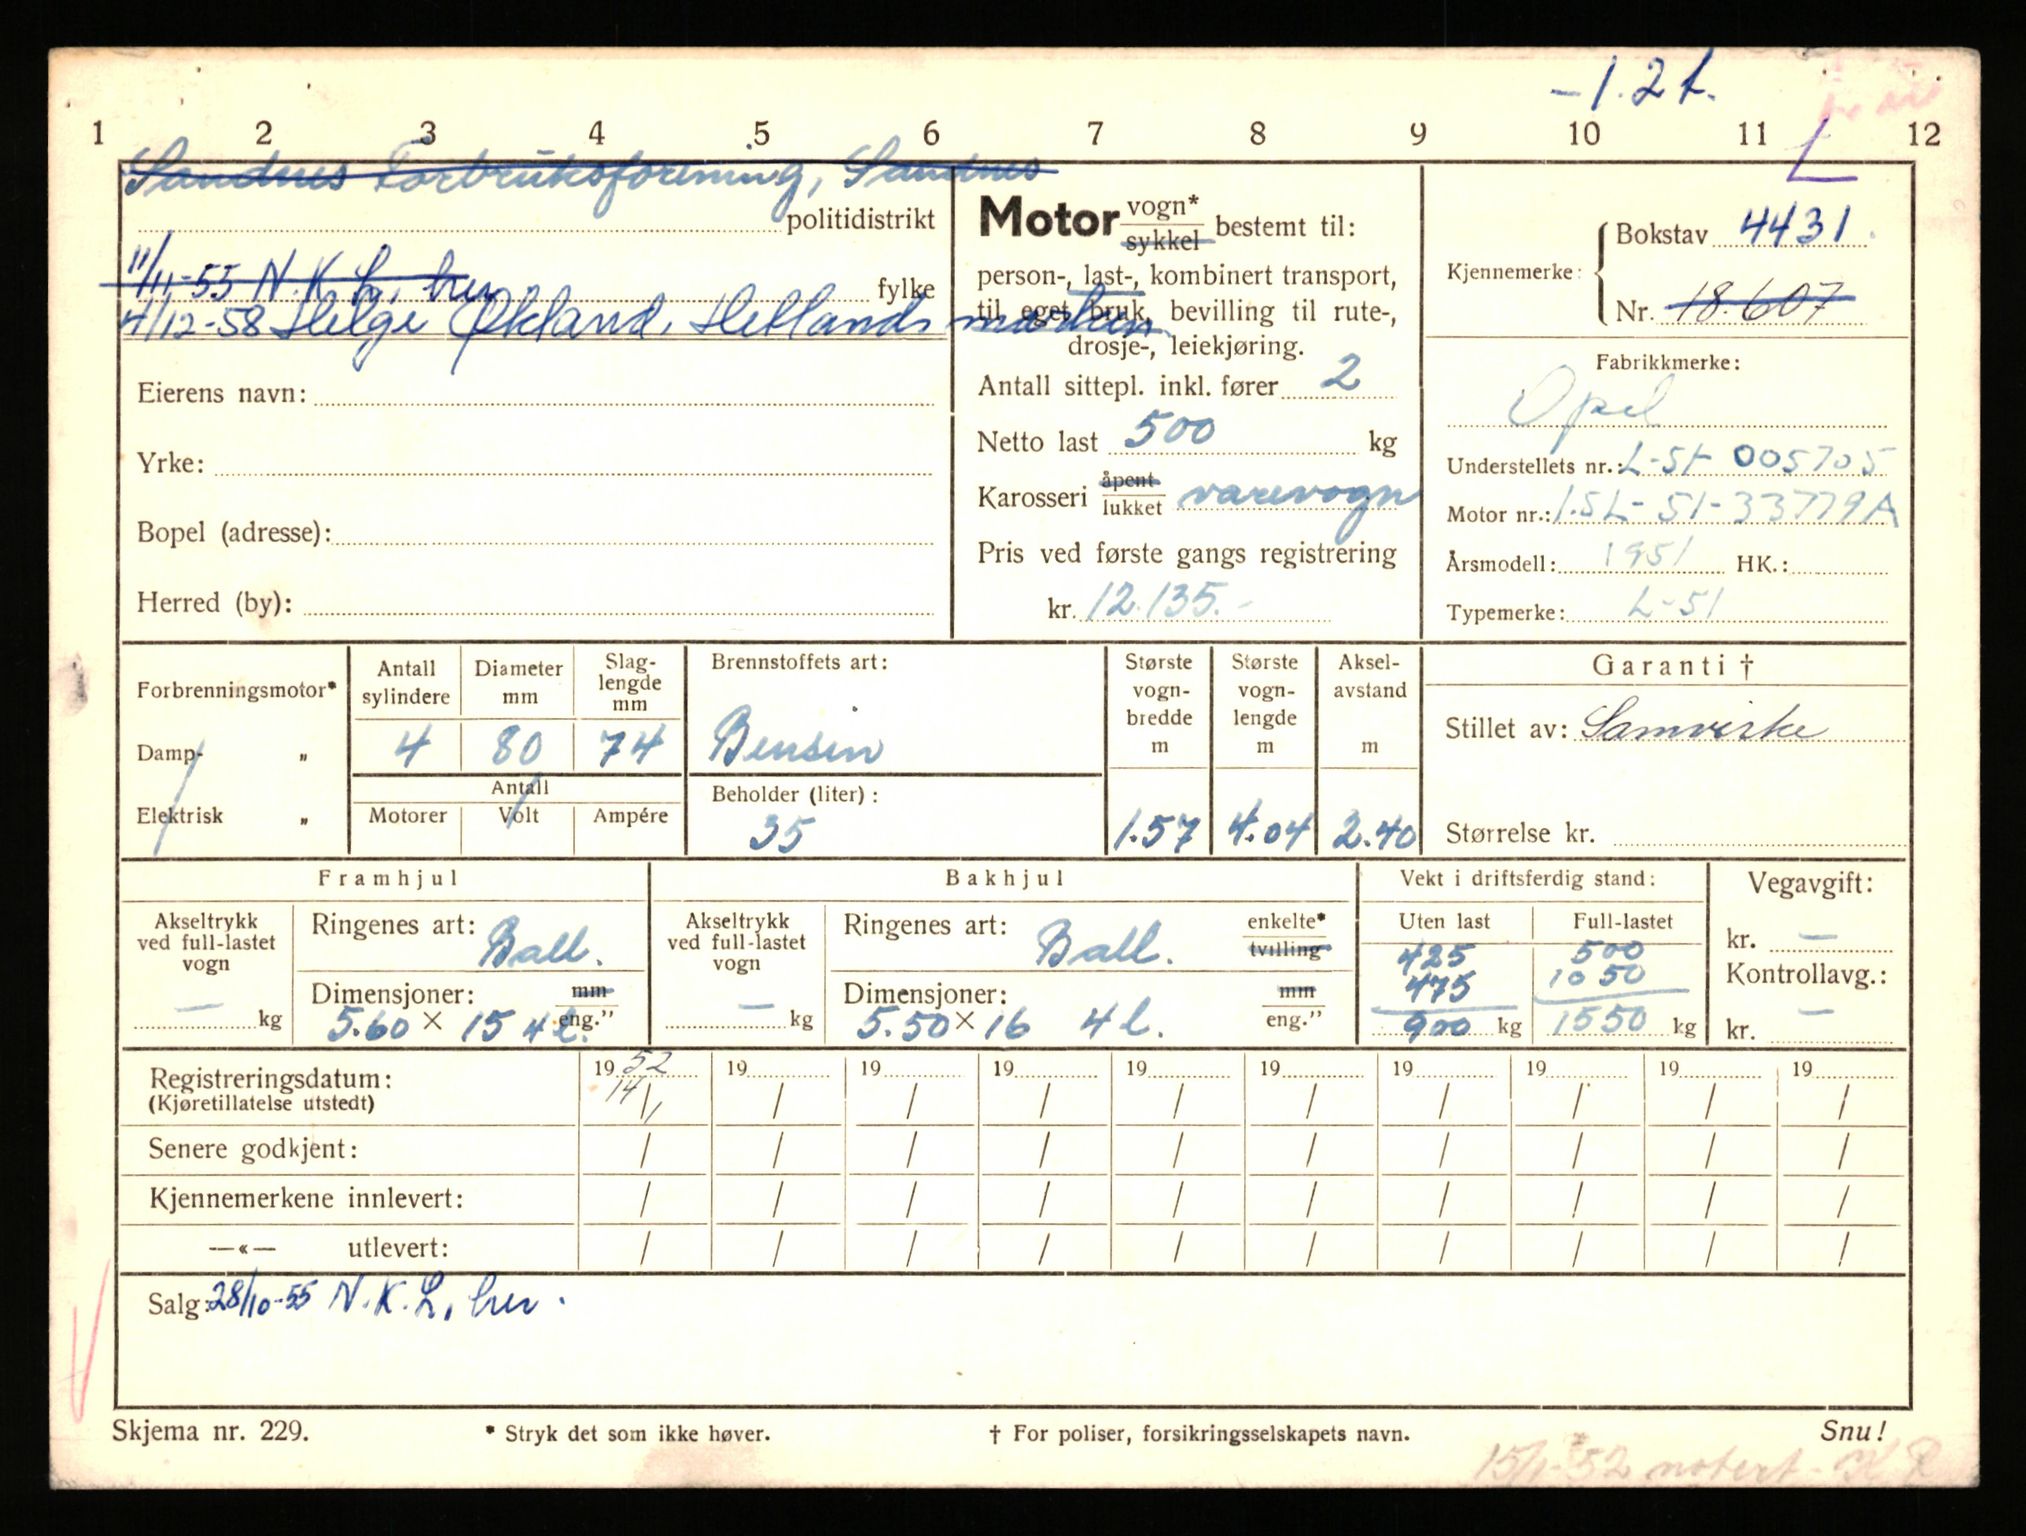 -1.2 t.
1 2 3 4 5 6 7 8 9 10 11 12
L
Sandnes Forbruksforening, Sandnes
politidistrikt
11/11-55 N.K.L, her
fylke
4/12-58 Helge Økland, Hetlandsmarken
Eierens navn:
Yrke:
Bopel (adresse):
Herred (by):
Motor vogn* sykkel bestemt til:
person-, last-, kombinert transport,
til eget bruk, bevilling til rute-,
drosje-, leiekjøring.
Antall sittepl. inkl. fører 2
Netto last 500 kg
Karosseri åpent lukket varevogn
Pris ved første gangs registrering
kr. 12.135.-
Kjennemerke: Bokstav 4431.
Nr. 18.607
Fabrikkmerke:
Opel
Understellets nr.: L-51- 005705
Motor nr.: 1.5L-51-33779A
Årsmodell: 1951 HK.:
Typemerke: L-51
Forbrenningsmotor*
Damp- „
Elektrisk „
Antall sylindere
4
Diameter mm
80
Slag-lengde mm
74
Antall
Motorer Volt Ampére
Brennstoffets art:
Bensin
Beholder (liter):
35
Største vogn-bredde m
1.57
Største vogn-lengde m
4.04
Aksel-avstand m
2.40
Garanti †
Stillet av: Samvirke
Størrelse kr.
Framhjul
Akseltrykk ved full-lastet vogn
— kg
Ringenes art: Ball.
Dimensjoner: mm eng."
5.60 x 15 4 l.
Bakhjul
Akseltrykk ved full-lastet vogn
— kg
Ringenes art: Ball. enkelte* tvilling
Dimensjoner: mm eng."
5.50 x 16 4 l.
Vekt i driftsferdig stand:
Uten last Full-lastet
425 500
475 1050
900 kg 1550 kg
Vegavgift:
kr. —
Kontrollavg.:
kr. —
Registreringsdatum: 1952 19 19 19 19 19 19 19 19 19
(Kjøretillatelse utstedt) 14/1 / / / / / / / / /
Senere godkjent: / / / / / / / / / /
Kjennemerkene innlevert: / / / / / / / / / /
—«— utlevert: / / / / / / / / / /
Salg: 28/10-55 N.K.L, her.
Skjema nr. 229.
* Stryk det som ikke høver.
† For poliser, forsikringsselskapets navn.
Snu!
15/1-52 notert - K R